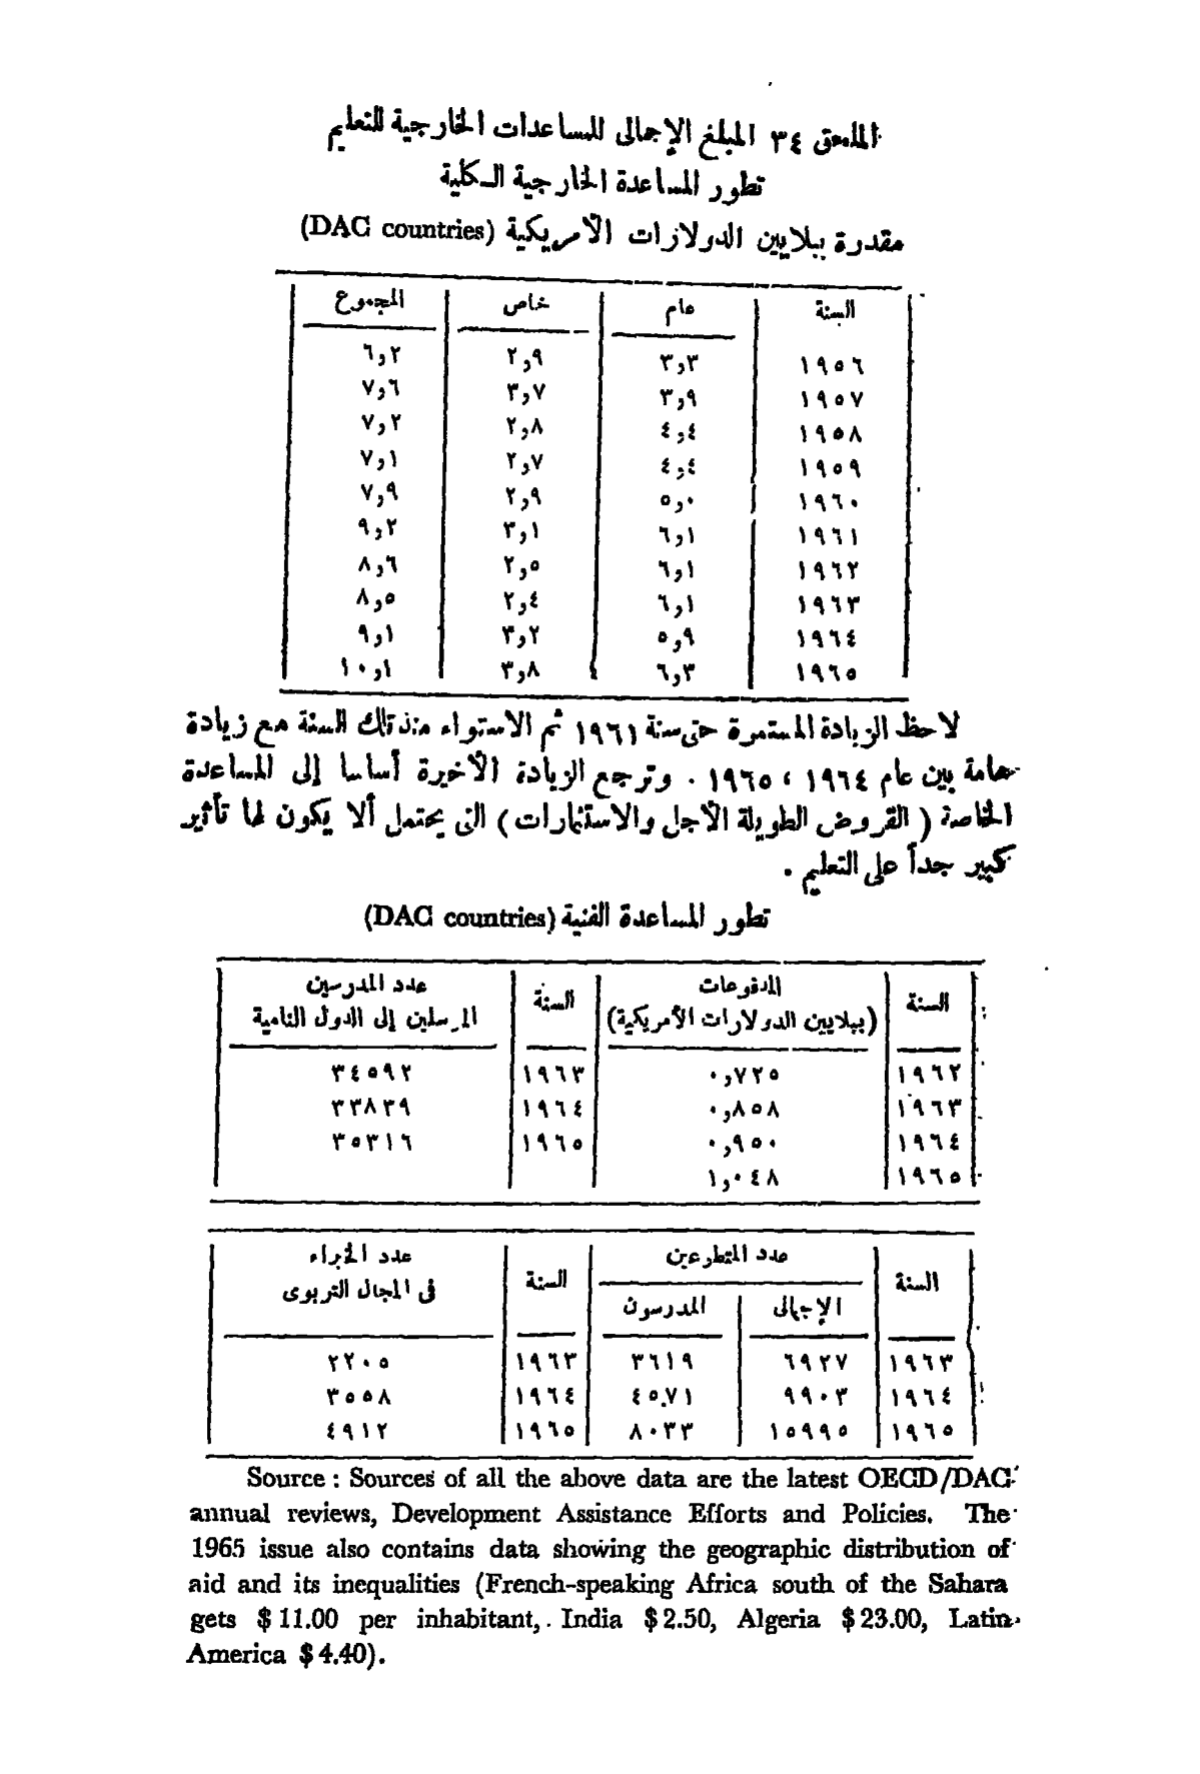 الملحق ٣٤ المبلغ الإجمالى للمساعدات الخارجية للتعليم
تطور المساعدة الخارجية الكلية
مقدرة ببلايين الدولارات الأمريكية (DAC countries)
السنة عام خاص المجموع
١٩٥٦ ٣٫٣ ٢٫٩ ٦٫٢
١٩٥٧ ٣٫٩ ٣٫٧ ٧٫٦
١٩٥٨ ٤٫٤ ٢٫٨ ٧٫٢
١٩٥٩ ٤٫٤ ٢٫٧ ٧٫١
١٩٦٠ ٥٫٠ ٢٫٩ ٧٫٩
١٩٦١ ٦٫١ ٣٫١ ٩٫٢
١٩٦٢ ٦٫١ ٢٫٥ ٨٫٦
١٩٦٣ ٦٫١ ٢٫٤ ٨٫٥
١٩٦٤ ٥٫٩ ٣٫٢ ٩٫١
١٩٦٥ ٦٫٣ ٣٫٨ ١٠٫١
لاحظ الزيادة المستمرة حتى سنة ١٩٦١ ثم الاستواء منذ تلك السنة مع زيادة
هامة بين عام ١٩٦٤ ، ١٩٦٥ . وترجع الزيادة الأخيرة أساسا إلى المساعدة
الخاصة ( القروض الطويلة الأجل والاستثمارات ) التى يحتمل ألا يكون لها تأثير
كبير جداً على التعليم .
تطور المساعدة الفنية (DAC countries)
السنة المدفوعات السنة عدد المدرسين
(ببلايين الدولارات الأمريكية) المرسلين إلى الدول النامية
١٩٦٢ ٠٫٧٢٥ ١٩٦٣ ٣٤٥٩٢
١٩٦٣ ٠٫٨٥٨ ١٩٦٤ ٣٣٨٣٩
١٩٦٤ ٠٫٩٥٠ ١٩٦٥ ٣٥٣١٦
١٩٦٥ ١٫٠٤٨
السنة عدد المتطوعين السنة عدد الخبراء
فى المجال التربوى
الإجمالى المدرسون
١٩٦٣ ٦٩٢٧ ٣٦١٩ ١٩٦٣ ٢٢٠٥
١٩٦٤ ٩٩٠٣ ٤٥٧١ ١٩٦٤ ٣٥٥٨
١٩٦٥ ١٥٩٩٥ ٨٠٣٣ ١٩٦٥ ٤٩١٢
Source : Sources of all the above data are the latest OECD/DAC
annual reviews, Development Assistance Efforts and Policies. The
1965 issue also contains data showing the geographic distribution of
aid and its inequalities (French-speaking Africa south of the Sahara
gets $ 11.00 per inhabitant, India $ 2.50, Algeria $ 23.00, Latin
America $ 4.40).